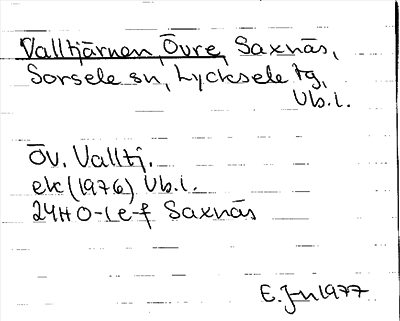 Valltjärnen, Övre, Saxnäs,
Sorsele sn, Lycksele tg,
Vb.l.
Öv. Valltj.
ek (1976) Vb.l.
24H 0-1 e-f Saxnäs
E. Jn 1977